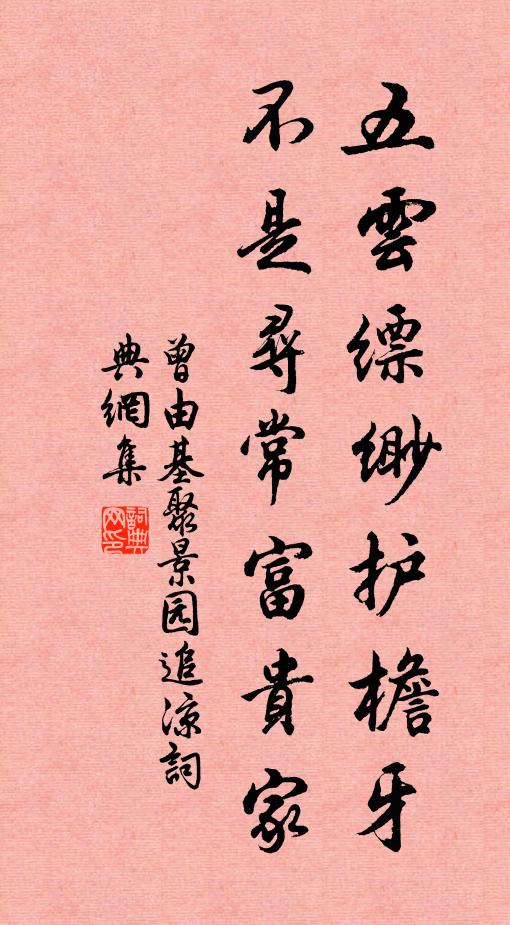 五雲縹緲护檐牙
不是尋常富貴家
曾由基聚景园追凉詞
典網集
詞典网印